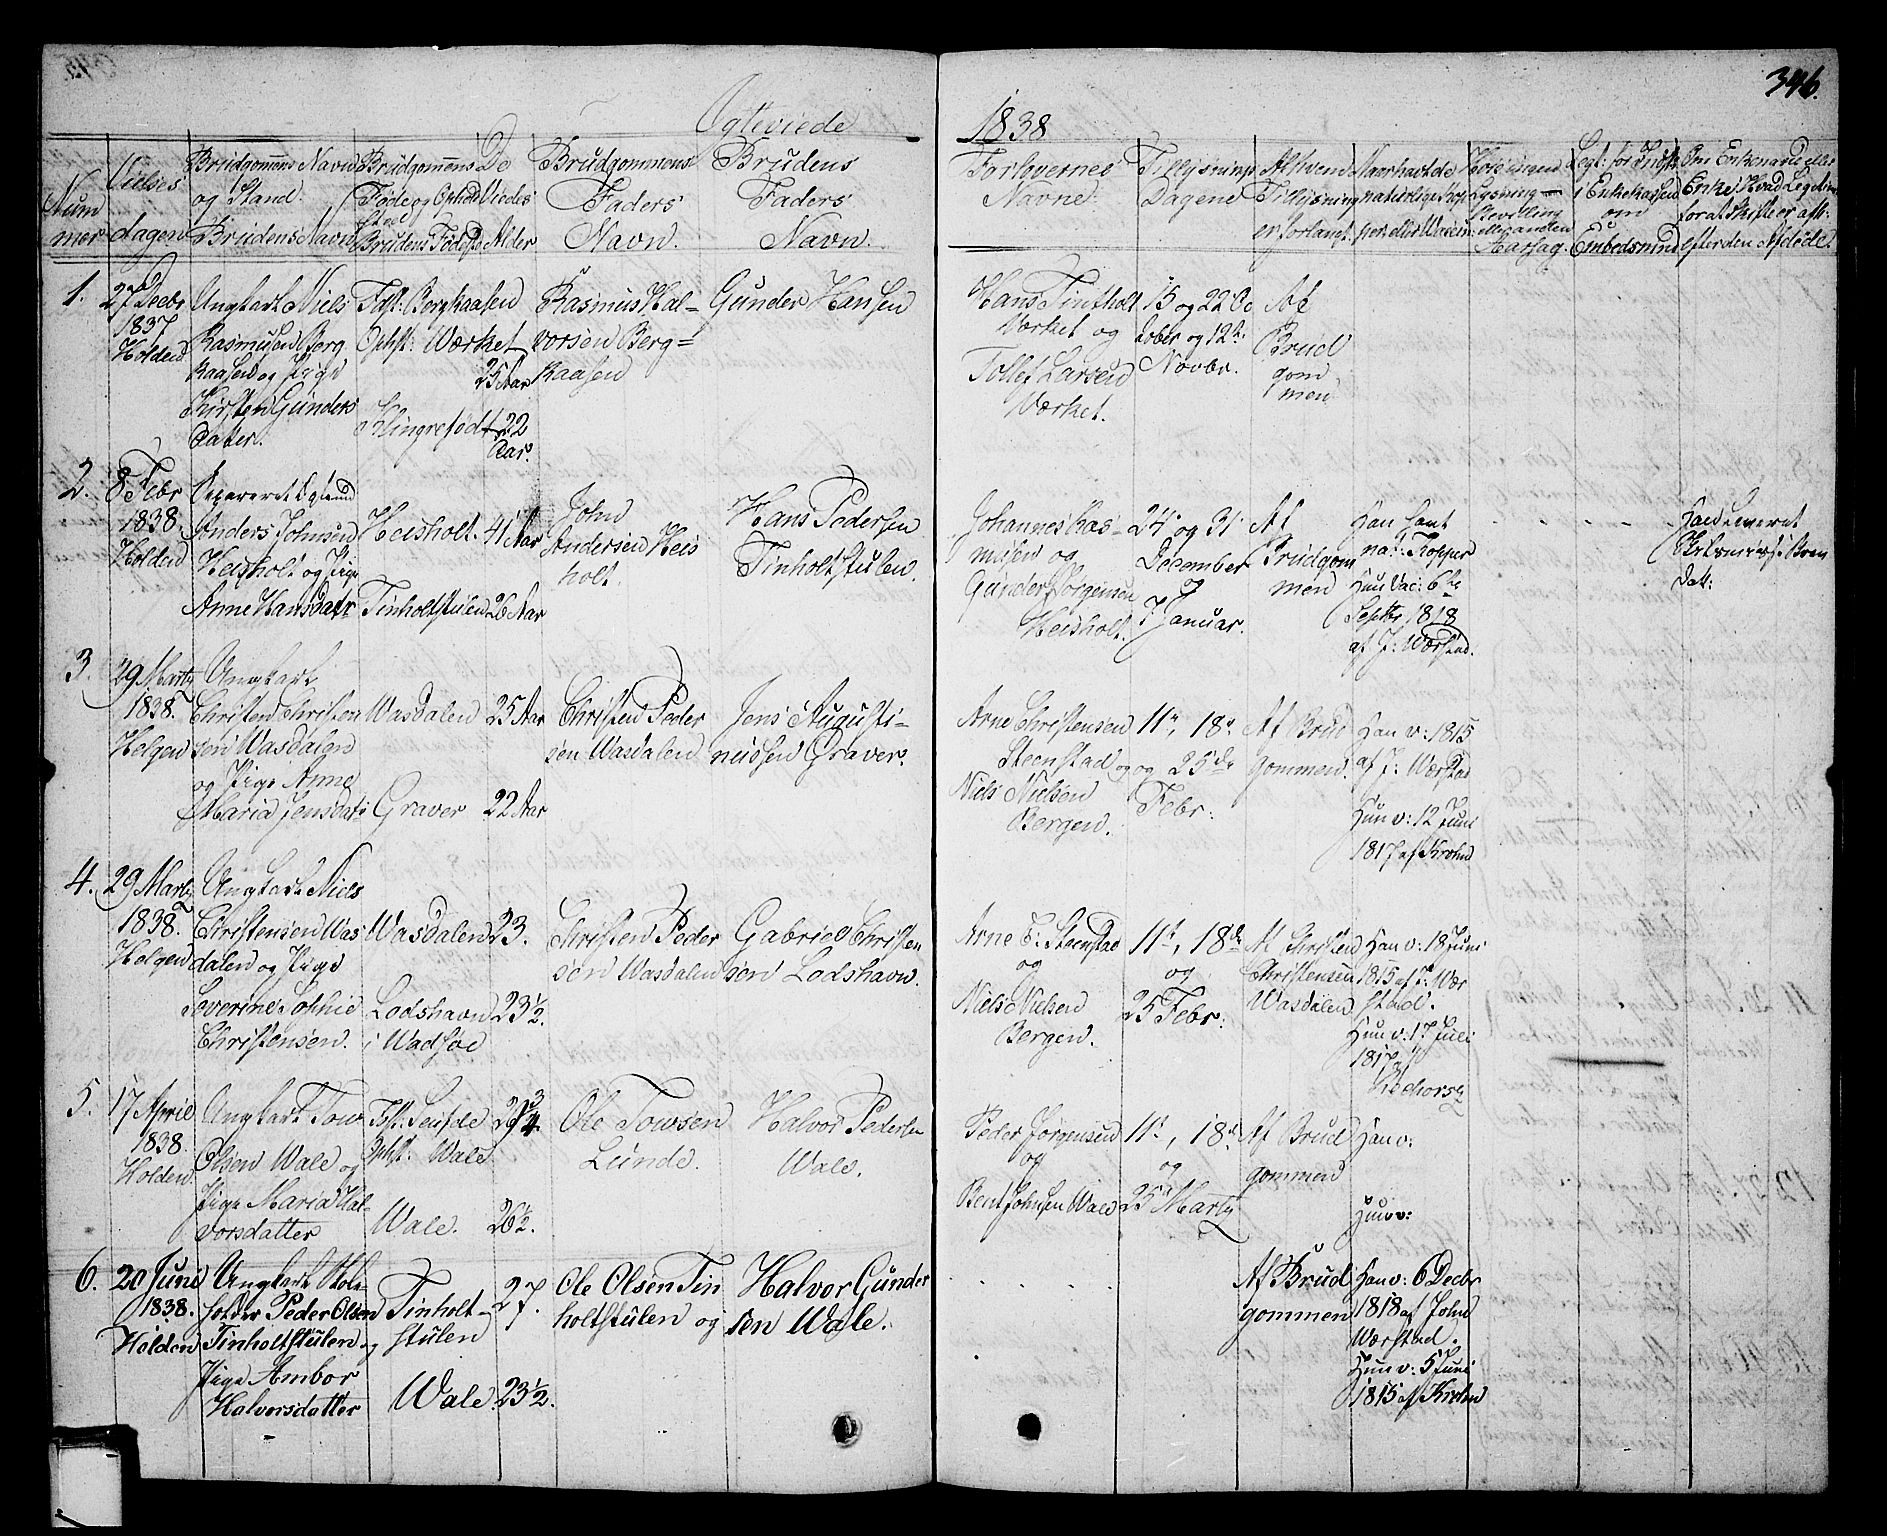 346.
Egteviede
1838
Num
mer
Vielses
dagen
Brudgomens Navn
og Stand.
Brudens Navn
Brudgomens
Føde og
Sted
Brudens Føde
De
Viedes
Alder
Brudgommens
Faders
Navn.
Brudens
Faders
Navn.
Forlovernes
Navne.
Tillysnings
Dagene
Af hvem
Tillysning
er forlangt.
Naar havt de
naturlige Kop
per eller Vaccin:
om
Enke
for at Skifte er
efter den Afdøde.
1.
27 Decbr
1837
Holden
Ungkarl Niels
Rasmusen Berg
kaasen og Pige
Kirsten Gunders
datter.
Fdst: Bergkaasen
Ophst: Værket
25 Aar
22
Aar.
Rasmus Hal=
vorsen Berg=
kaasen
Gunder Hansen
Hans Tinholt
Værket og
Tollef Larsen
Værket.
15 og 22 Oc
tober og 12te
Novbr.
Af
Brud
gom
men
2.
8 Febr
1838.
Holden
Anders Johnsen
Heisholt og Pige
Anne Hansdatr
Heisholt.
Tinholtstulen
41 Aar
26 Aar
John
Andersen Heis
holt.
Hans Pedersen
Tinholtstulen.
Johannes Ras=
musen og
Gunder Jørgensen
Heisholt.
24 og 31
December
7 Januar.
Af
Brudgom
men
Han havt
nat: Kopper
Hun Vac: 6te
Septbr 1818
af J: Værstad.
3.
29 Marty
1838.
Helgen
Ungkarl
Christen Christen
sen Wasdalen
og Pige Anne
Maria Jensdatr
Wasdalen
Graver
25 Aar
22 Aar
Christen Peder
sen Wasdalen
Jens Augusti=
nussen Graver.
Arne Christensen
Steenstad og
Niels Nielsen
Bergen.
11te, 18de
og 25de
Febr:
Af Brud
gommen.
Han v: 1815
af J: Værstad
Hun v: 12 Juni
1817 af Krohn
4.
29 Marty
1838.
Helgen
Ungkarl Niels
Christensen Was
dalen og Pige
Severine Sophie
Christensen.
Wasdalen
Lodshavn
i Wadsøe
23.
23½.
Christen Peder
sen Wasdalen
Gabriel Christen
sen Lodshavn.
Arne C: Steenstad
og
Niels Nielsen
Bergen.
11te, 18de
og
25 Febr:
Af Christen
Christensen
Wasdalen
Han v: 18 Juni
1815 af J: Vær
stad.
Hun v: 17 Juli
5.
17 April
1838.
Holden
Ungkarl Tow
Olsen Wale og
Pige Maria Hal=
vorsdatter
Ophst: Wale
Wale.
26½.
Ole Towsen
Lunde.
Halvor Pedersen
Wale.
Peder Jørgensen
og
Bent Johnsen Wale
11te, 18de
og
25 Marty
Af Brud
gommen
Han v:
Hun v:
6.
20 Juni
1838.
Holden
Ungkarl
Peder Olsen
Tinholtstulen og
Pige Ambor
Halvorsdatter
Tinholt=
stulen
Wale.
27.
23½.
Ole Olsen Tin
holtstulen og
Halvor Gunder
sen Wale.
Af Brud
gommen
Han v: 6 Decbr
1818 af John
Værstad.
Hun v: 5 Juni
1815 af Krohn